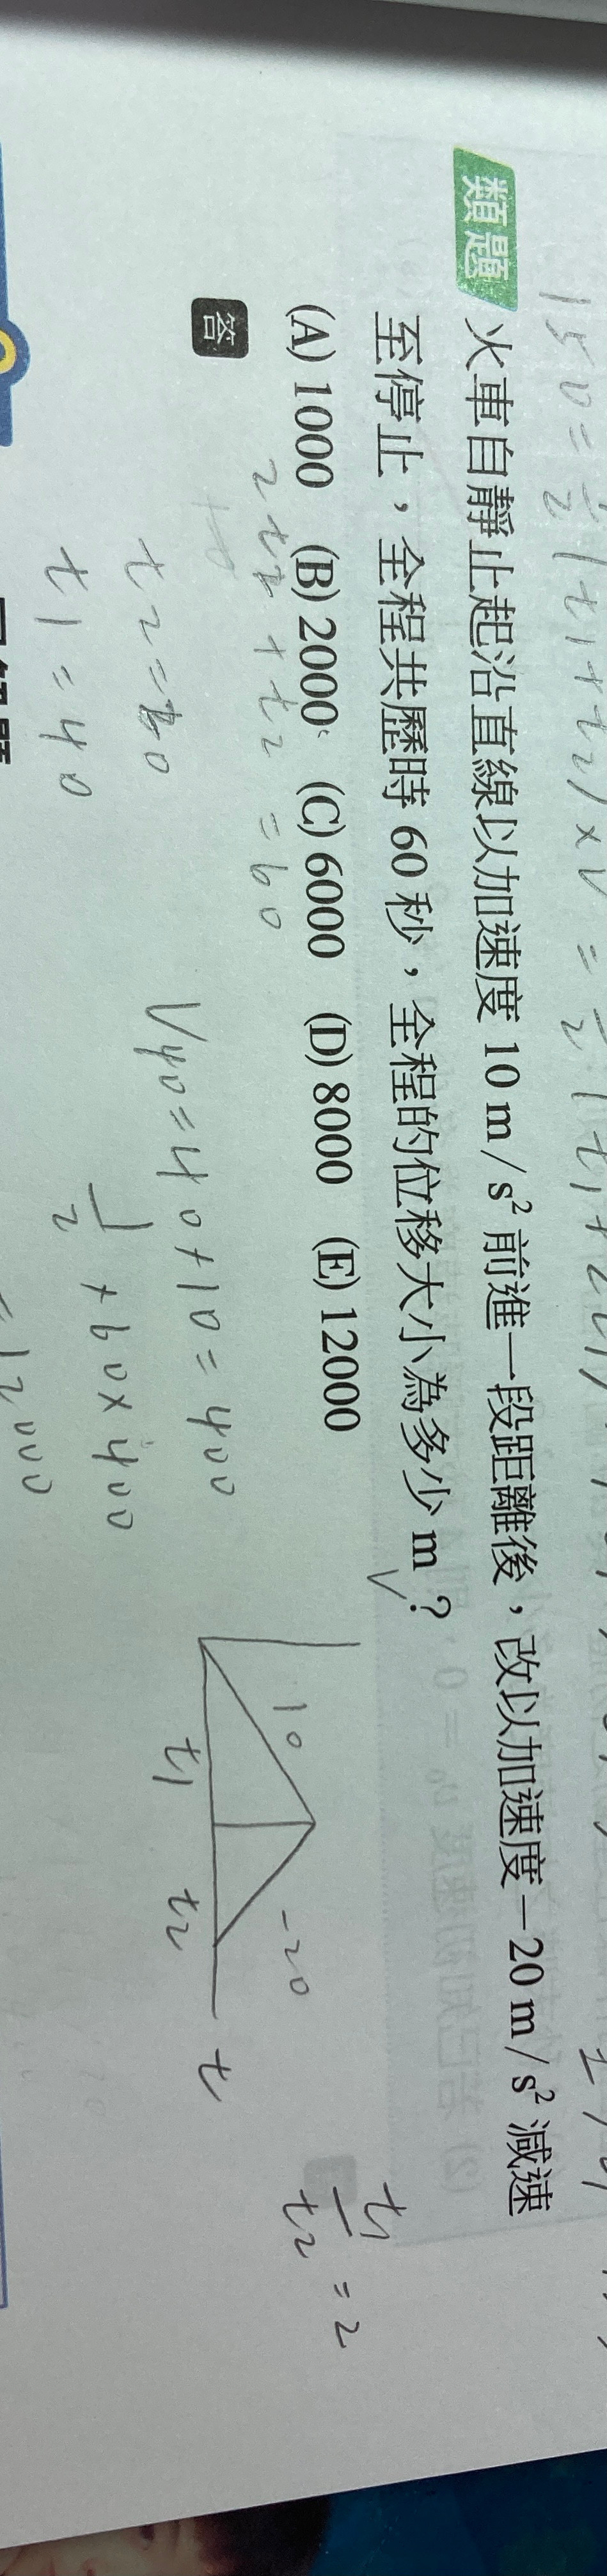 類題 火車自靜止起沿直線以加速度 10 m/s² 前進一段距離後，改以加速度 −20 m/s² 減速
至停止，全程共歷時 60 秒，全程的位移大小為多少 m？
(A) 1000 (B) 2000 (C) 6000 (D) 8000 (E) 12000
答
2t2 + t2 = 60
t1 = 40
V40 = 40×10 = 400
1/2 × 60 × 400
= 12000
10
-20
t1
t2
t
t1/t2 = 2